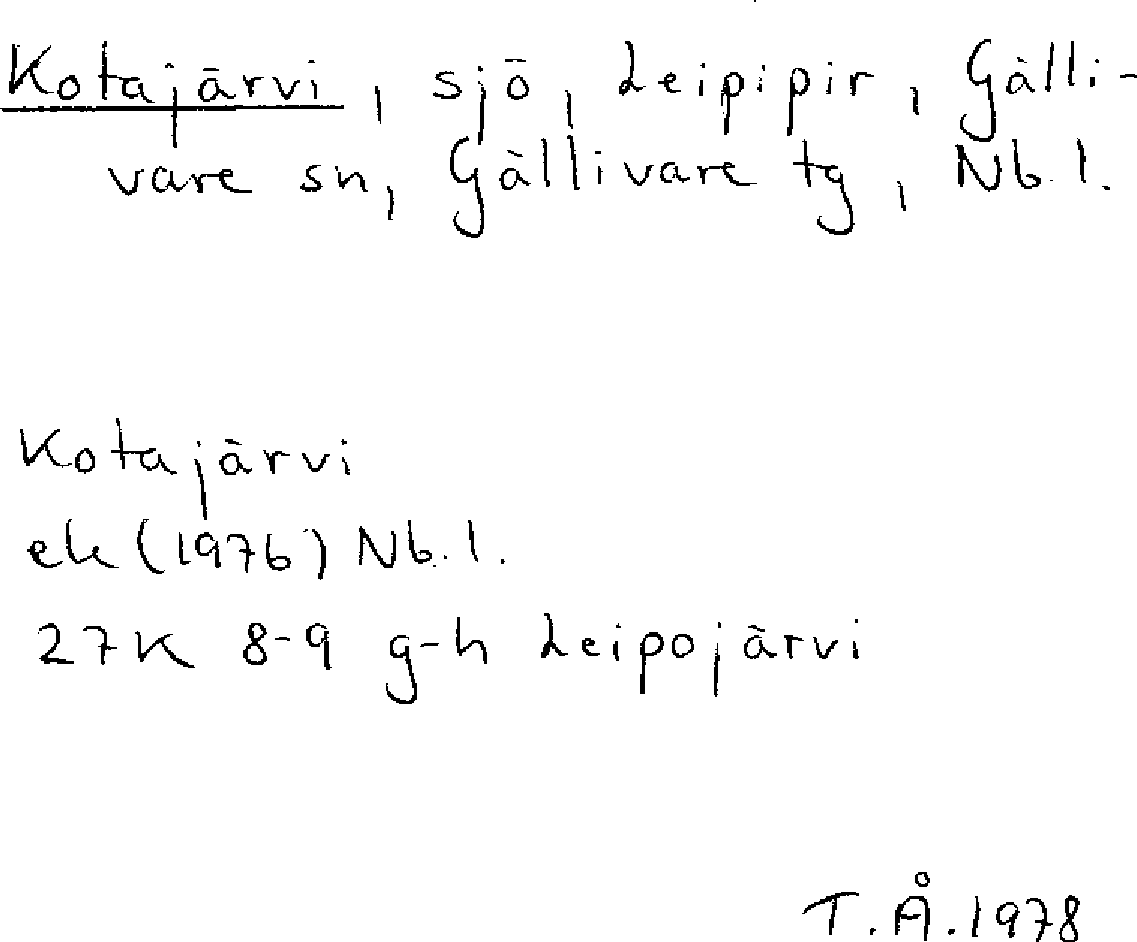 Kotajärvi, sjö, Leipipir, Gälli-
vare sn, Gällivare tg, Nb.l.
Kotajärvi
ek (1976) Nb.l.
27K 8-9 g-h Leipojärvi
T.Å.1978